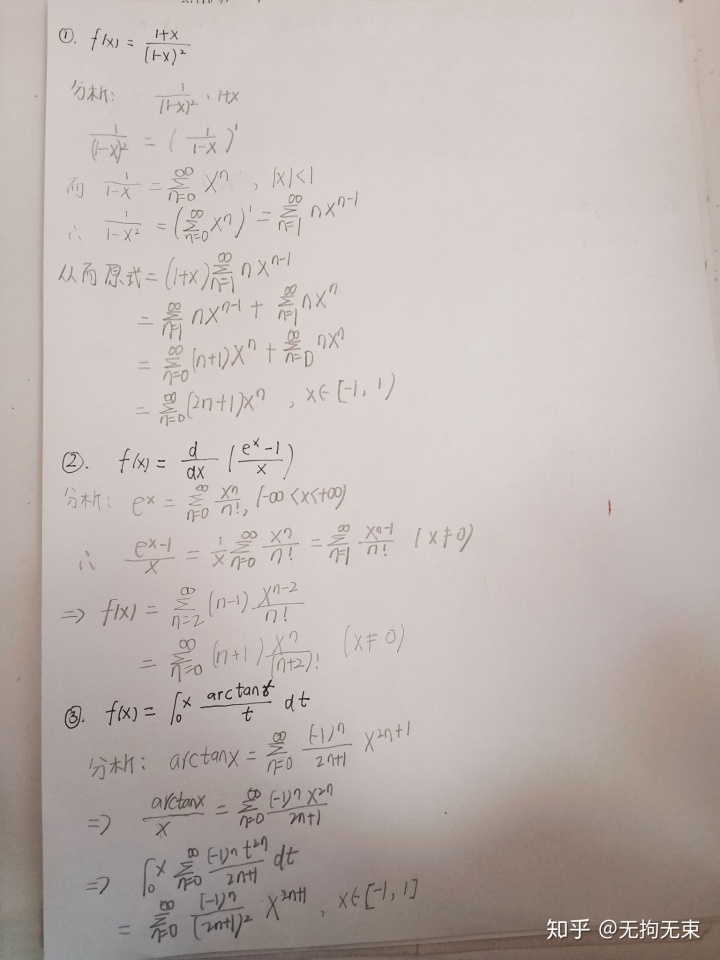 ①. f(x) = \frac{1+x}{(1-x)^2}
分析: \frac{1}{(1-x)^2} · 1+x
\frac{1}{(1-x)^2} = (\frac{1}{1-x})'
而 \frac{1}{1-x} = \sum_{n=0}^{∞} x^n , |x|<1
∴ \frac{1}{1-x^2} = (\sum_{n=0}^{∞} x^n)' = \sum_{n=1}^{∞} nx^{n-1}
从而原式 = (1+x) \sum_{n=1}^{∞} nx^{n-1}
= \sum_{n=1}^{∞} nx^{n-1} + \sum_{n=1}^{∞} nx^n
= \sum_{n=0}^{∞} (n+1)x^n + \sum_{n=0}^{∞} nx^n
= \sum_{n=0}^{∞} (2n+1)x^n , x∈[-1, 1)
②. f(x) = \frac{d}{dx} (\frac{e^x-1}{x})
分析: e^x = \sum_{n=0}^{∞} \frac{x^n}{n!}, (-∞<x<+∞)
∴ \frac{e^x-1}{x} = \frac{1}{x} \sum_{n=0}^{∞} \frac{x^n}{n!} = \sum_{n=1}^{∞} \frac{x^{n-1}}{n!} (x≠0)
⇒ f(x) = \sum_{n=2}^{∞} (n-1) \frac{x^{n-2}}{n!}
= \sum_{n=0}^{∞} (n+1) \frac{x^n}{(n+2)!} (x≠0)
③. f(x) = \int_0^x \frac{arctant}{t} dt
分析: arctanx = \sum_{n=0}^{∞} \frac{(-1)^n}{2n+1} x^{2n+1}
⇒ \frac{arctanx}{x} = \sum_{n=0}^{∞} \frac{(-1)^n x^{2n}}{2n+1}
⇒ \int_0^x \sum_{n=0}^{∞} \frac{(-1)^n t^{2n}}{2n+1} dt
= \sum_{n=0}^{∞} \frac{(-1)^n}{(2n+1)^2} x^{2n+1} , x∈[-1, 1]
知乎 @无拘无束